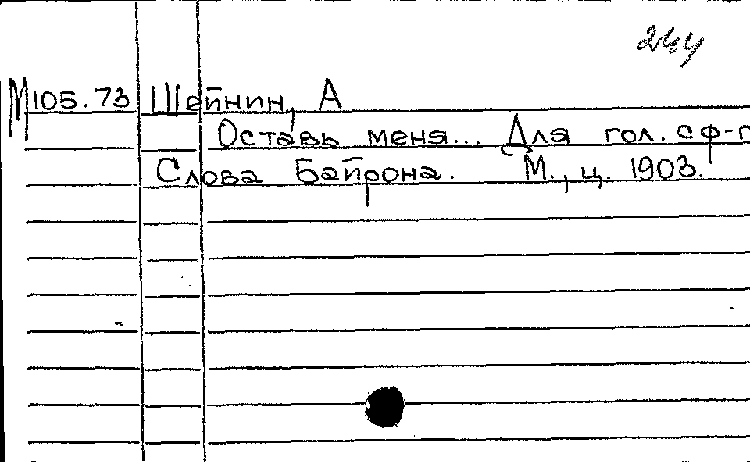 244
М105.73 Шейнин, А
Оставь меня... Для гол. с ф-п
Слова Байрона. М., ц. 1903.